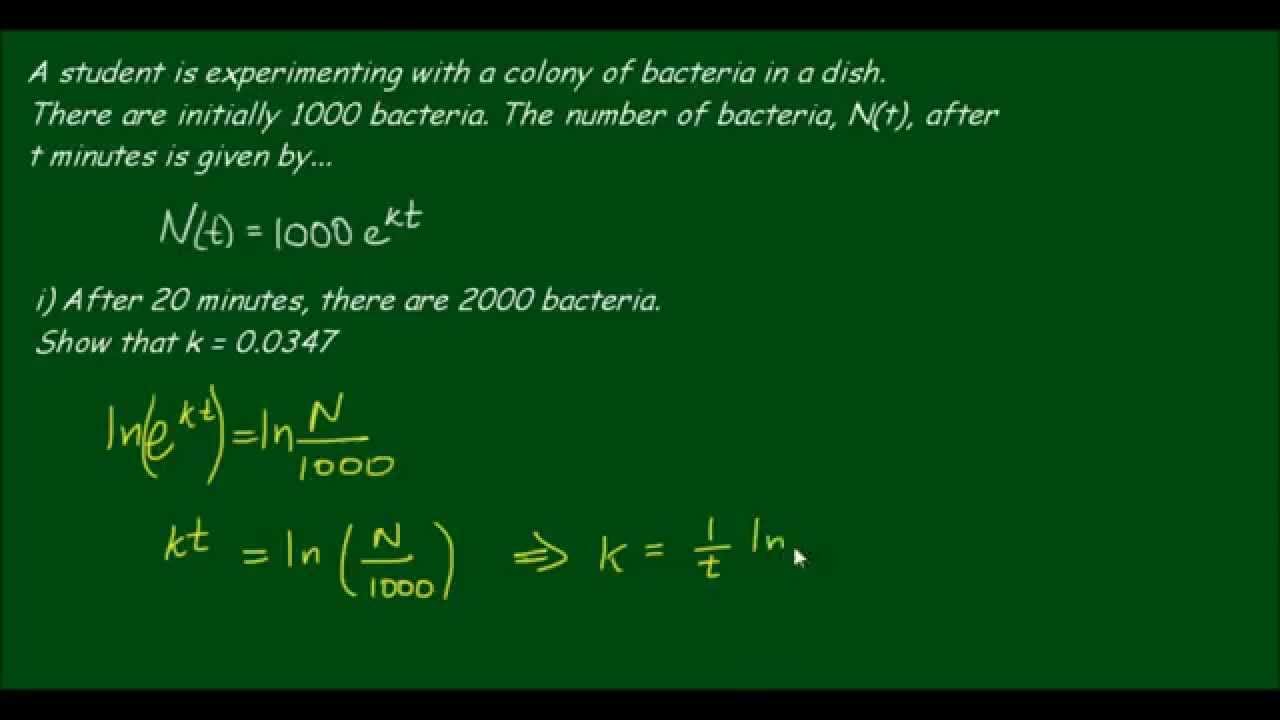 A student is experimenting with a colony of bacteria in a dish.
There are initially 1000 bacteria. The number of bacteria, N(t), after
t minutes is given by...
N(t) = 1000 e^kt
i) After 20 minutes, there are 2000 bacteria.
Show that k = 0.0347
ln(e^kt) = ln N/1000
kt = ln (N/1000) ⇒ k = 1/t ln